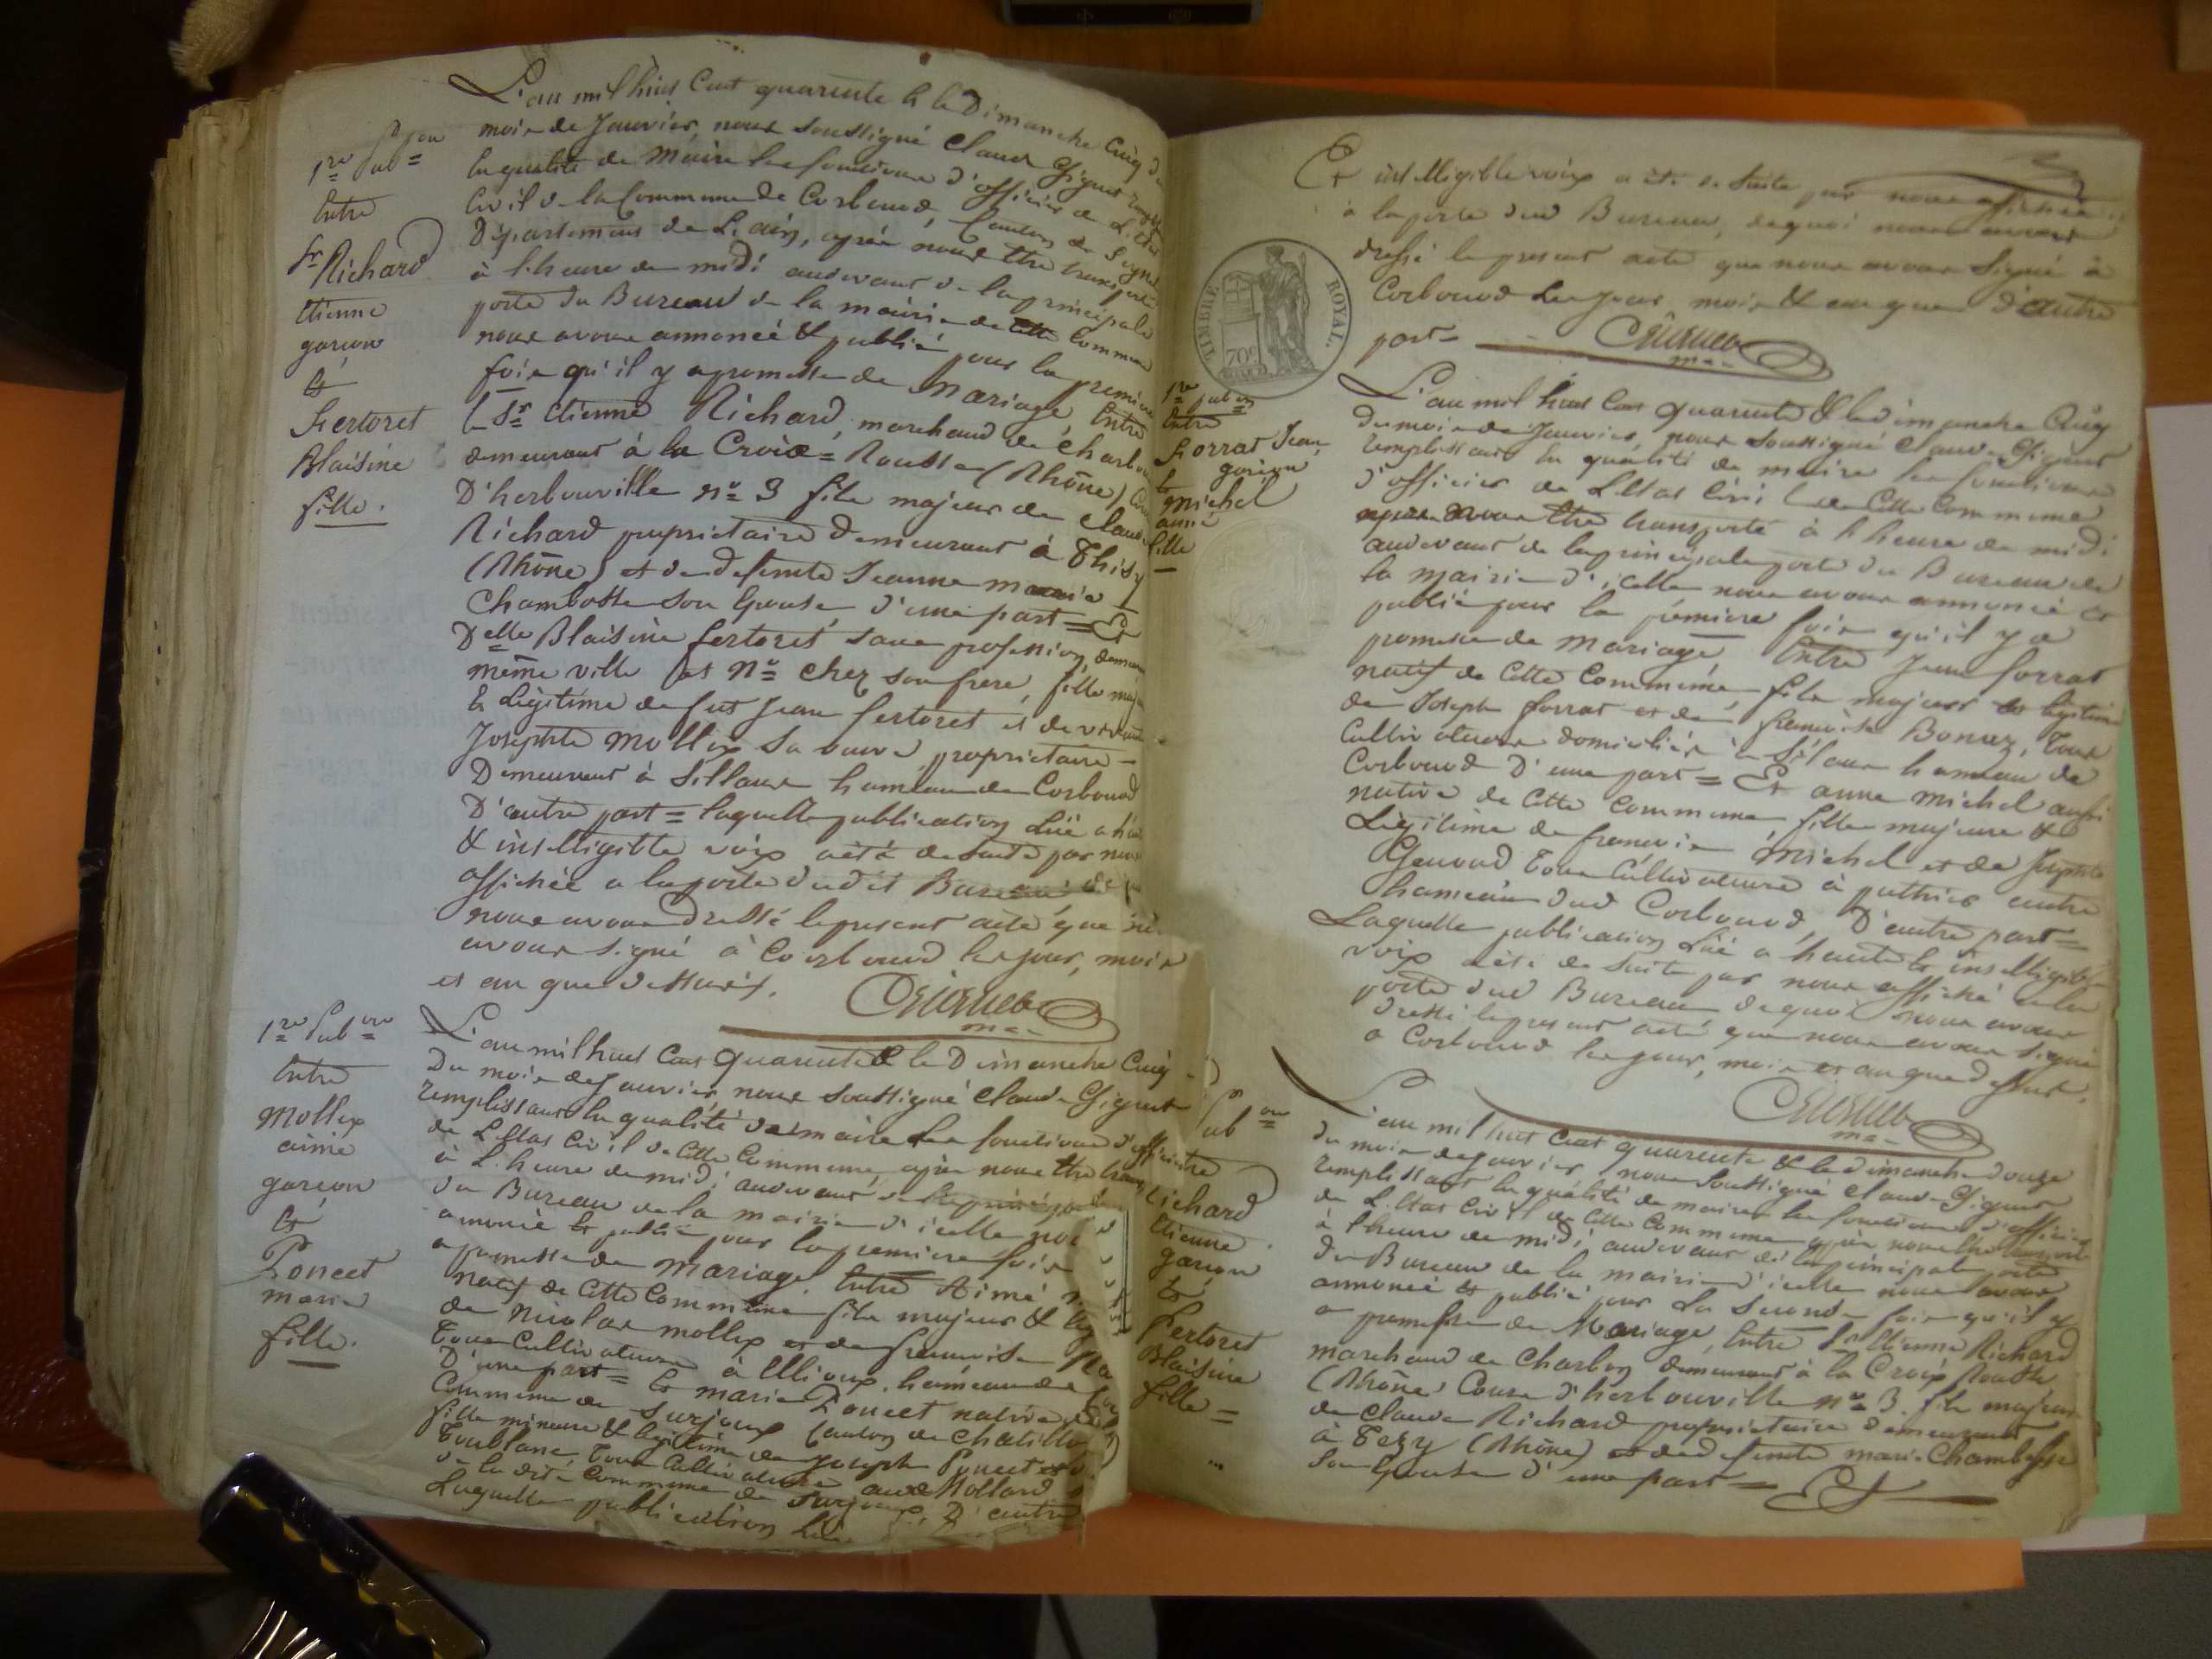 L'an mil huit Cent quarente & le Dimanche Cinq du
mois de Janvier, nous soussigné Claude Gignet
la qualité de Maire les fonctions d'officier de L'état
Civil de la Commune de Corbonod, Canton de Seyssel
Département de L'ain, après nous être transporté
à l'heure de midi audevant de la principale
porte du Bureau de la mairie de Cette Commune
nous avons annoncé & publié pour la première
fois qu'il y a promesse de Mariage, Entre
le Sr Etienne Richard, marchand de charbon
demeurant à la Croix=Rousse (Rhône)
D'herbouville no 3 fils majeur de Claude
Richard propriétaire demeurant à Thisy
(Rhône) et de defunte Jeanne marie
Chambosse son Epouse, D'une part = Et
Delle Blaisine fertoret, sans profession,
même ville et No chez son frère, fille
& Légitime de fut Jean fertoret et de
Josephte Mollex sa veuve propriétaire -
Demeurant à Sillans hameau de Corbonod
D'autre part = laquelle publication Lüe a
& intelligible voix a été de suite par nous
affichée a la porte dudit Bureau de
nous avons dressé le present acte que
avons signé à Corbonod les jour, mois
et an que dessus.
1re Pubon
Entre
Sr Richard
Etienne
garçon
Et
Fertoret
Blaisine
fille.
L'an mil huit Cent quarente & le Dimanche Cinq
Du mois de Janvier, nous soussigné Claude Gignet
remplissant la qualité de maire les fonctions d'officier
de L'état Civil de Cette Commune, après nous être
à L'heure de midi audevant de la principale
du Bureau de la mairie d'icelle
annoncé & publié pour la première fois
a promesse de Mariage, Entre Aimé
natif de Cette Commune fils majeur &
de Nicolas mollex et de françoise
Tous Cultivateurs à Ellioux, hameau de
D'une part = Et marie Poncet native de
Commune de Surjoux Canton de Chatillon
fille mineure & légitime de Joseph Poncet et
Tous Cultivateurs aux Rollard
de la dite Commune de Surjoux, D'autre
Laquelle publication Lüe
1re Pubon
Entre
Mollex
aimé
garçon
Et
Poncet
marie
fille.
Et intelligible voix a été de suite par nous affichée
à la porte dud Bureau, dequoi nous avons
dressé le present acte que nous avons signé à
Corbonod Les jour, mois & an que D'autre
part =
TIMBRE ROYAL.
70c
L'an mil huit Cent quarente & le dimanche Cinq
du mois de Janvier, nous soussigné Claude Gignet
remplissant la qualité de maire les fonctions
d'officier de L'état Civil de Cette Commune
après nous être transporté à l'heure de midi
audevant de la principale porte du Bureau de
la mairie d'icelle nous avons annoncé et
publié pour la première fois qu'il y a
promesse de Mariage Entre Jean forrat
natif de Cette Commune, fils majeur et légitime
de Joseph forrat et de françoise Bonaz, tous
Cultivateurs domiciliés à Silans hameau de
Corbonod D'une part = Et anne michel aussi
native de Cette Commune, fille majeure &
Légitime de françois Michel et de Josephte
Genoud Tous Cultivateurs à puthier autre
hameau dud Corbonod, D'autre part =
Laquelle publication Lüe a haute & intelligible
voix a été de suite par nous affiché a la
porte dud Bureau dequoi nous avons
dressé le present acte que nous avons signé
a Corbonod les jour, mois et an que dessus.
1re pubon
Entre
Forrat Jean,
garçon
Et
Michel
anne
fille
L'an mil huit Cent quarente & le dimanche douze
du mois de Janvier, nous soussigné Claude Gignet
remplissant la qualité de maire les fonctions d'officier
de L'état Civil de Cette Commune après nous être transporté
à l'heure de midi audevant de la principale porte
du Bureau de la mairie d'icelle nous avons
annoncé & publié pour La Seconde fois qu'il y
a promesse de Mariage, Entre Sr Etienne Richard
marchand de Charbon demeurant à la Croix Rousse
(Rhône) Cours d'herbouville no 3. fils majeur
de Claude Richard propriétaire demeurant
à Tezy (Rhône) et de defunte marie Chambosse
son Epouse D'une part = Et
Pubon
Richard
Etienne
garçon
Et
Fertoret
Blaisine
fille =